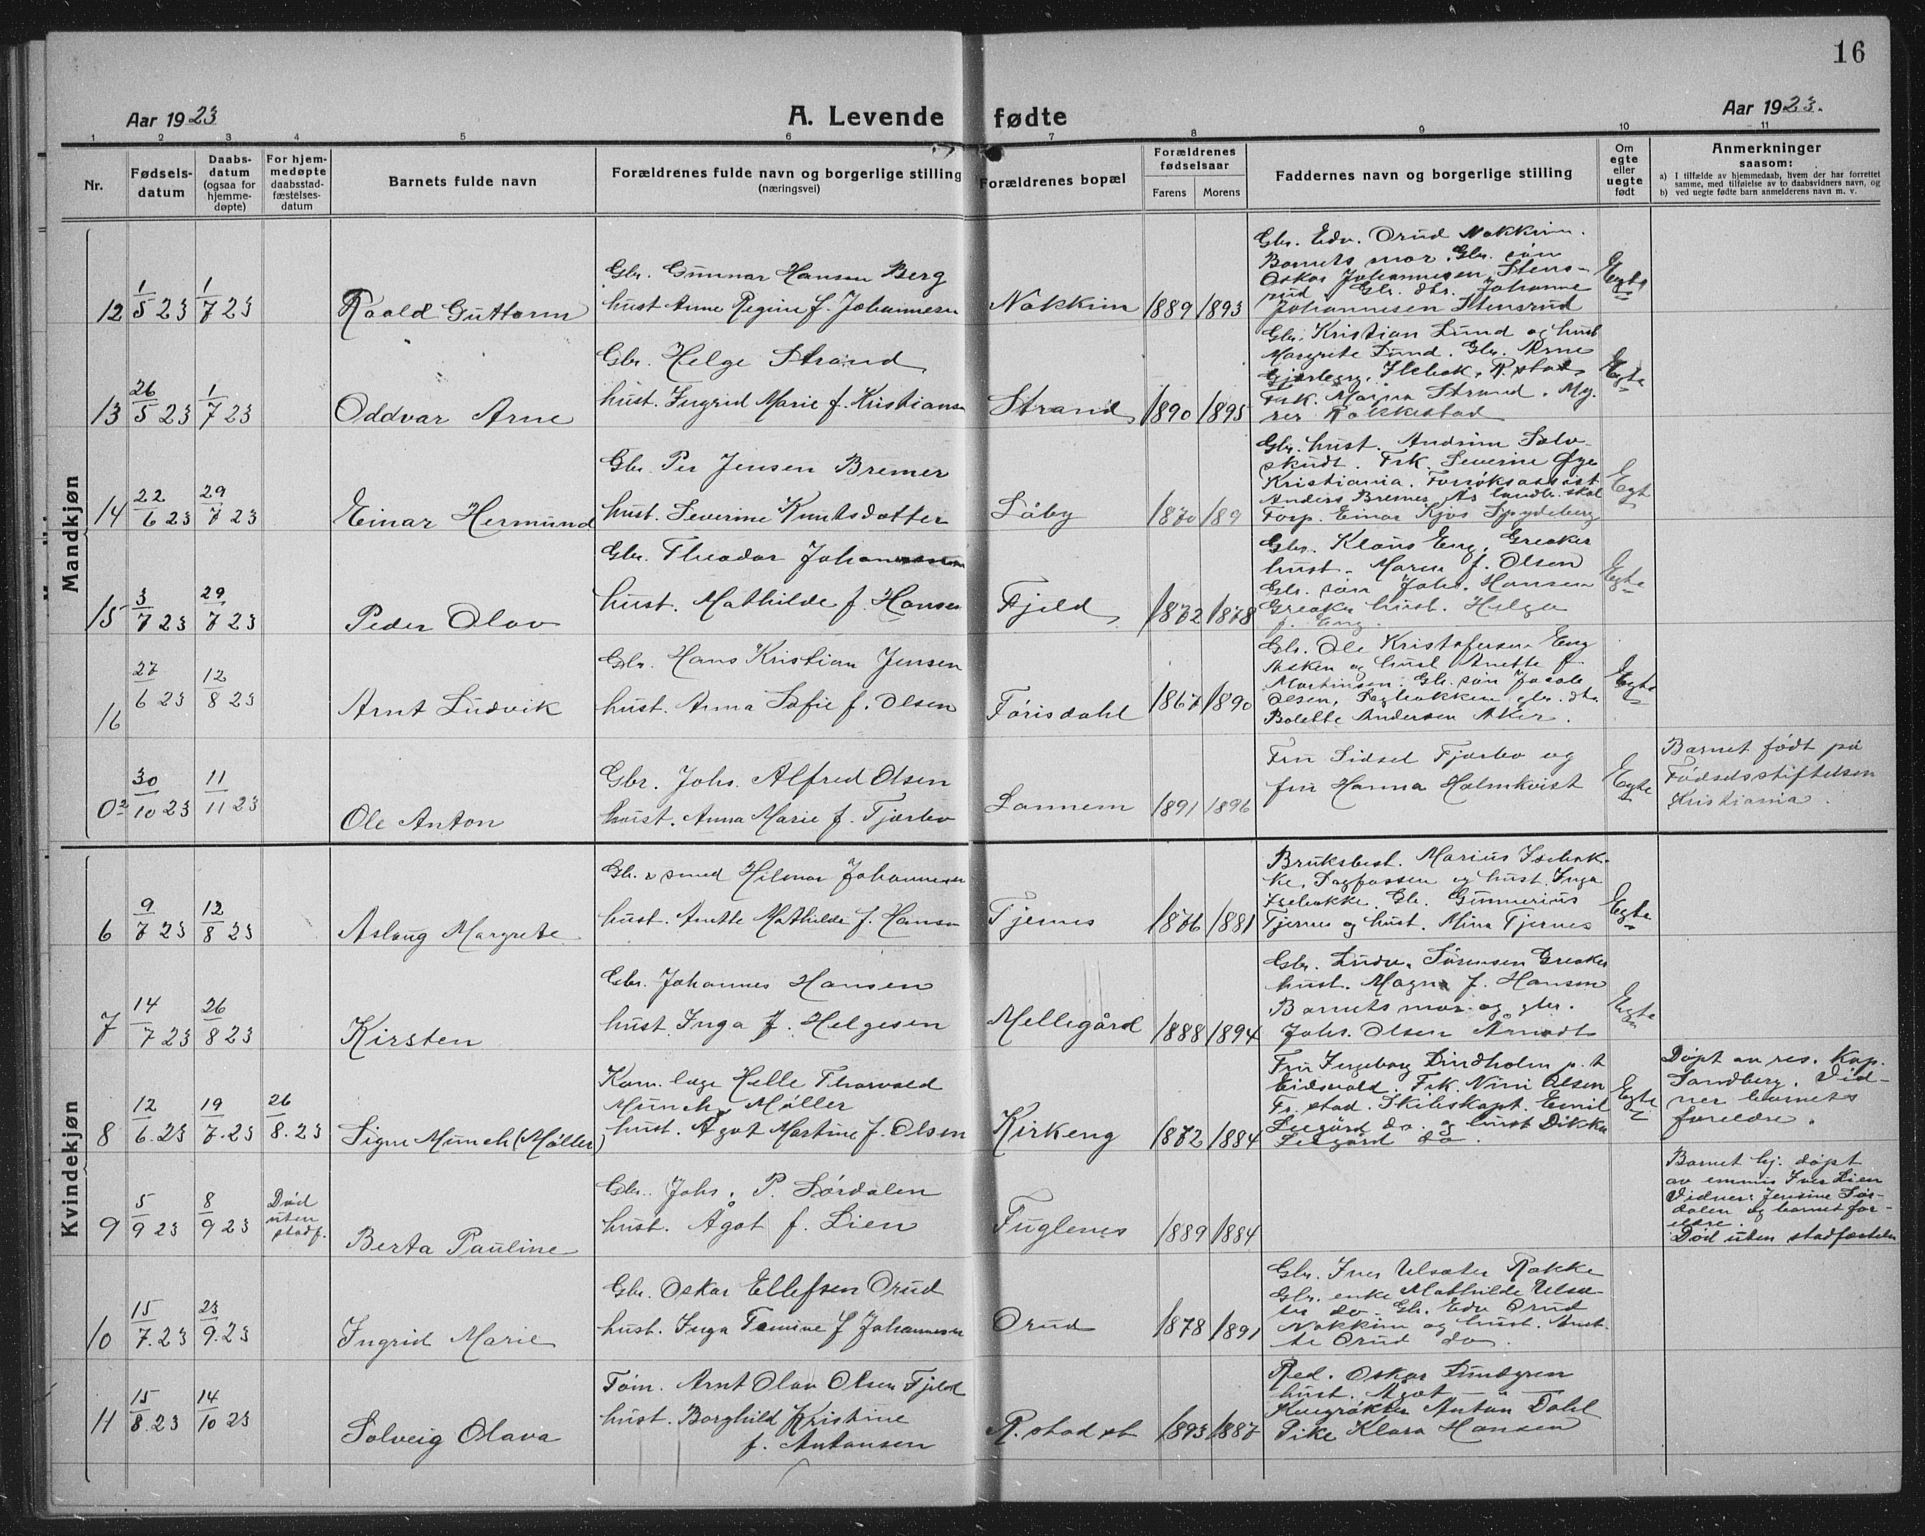 16
Aar 1923
A. Levende fødte
Aar 1923.
1 2 3 4 5 6 7 8 9 10 11
Nr.
Fødsels-
datum
Daabs-
datum
(ogsaa for
hjemme-
døpte)
For hjem-
medøpte
daabsstad-
fæstelses-
datum
Barnets fulde navn
Forældrenes fulde navn og borgerlige stilling
(næringsvei)
Forældrenes bopæl
Forældrenes
fødselsaar
Farens Morens
Faddernes navn og borgerlige stilling
Om
egte
eller
uegte
født
Anmerkninger
saasom:
a) I tilfælde av hjemmedaab, hvem der har forrettet
samme, med tilføielse av to daabsvidners navn, og
b) ved uegte fødte barn anmelderens navn m. v.
Mandkjøn
12 1/5 23 1/7 23
Roald Guttorm
Gbr. Gunnar Hansen Berg
hust. Anne Regine f. Johannesen
Nokkim 1889 1893
Gbr. Edv. Orud Nokkim.
Barnets mor. Gbr. søn
Oskar Johannesen Stens-
rud Gbr. dtr. Johanne
Johannesen Stensrud
Egte
13 26/5 23 1/7 23
Oddvar Arne
Gbr. Helge Strand
hust. Ingrid Marie f. Kristiansen
Strand 1890 1895
Gbr. Kristian Lund og hust
Margrete Lund. Gbr. Arne
R.stad
Frk. Marna Strand. My-
rer Rakkestad
Egte
14 22/6 23 29/7 23
Einar Hermund
Gbr. Per Jensen Bremer
hust. Severine Knutsdatter
Låby 1870 189
Gbr. hust. Andrine Sølv-
skudt. Frk. Severine Øye
Kristiania. Forsøksassist
Anders Bremer Ås landbr. skol
Forp. Einar Kjos Spydeberg
Egte
15 3/7 23 29/7 23
Peder Olav
Gbr. Theodor Johannessen
hust. Mathilde f. Hansen
Fjeld 1872 1878
Gbr. Klaus Eng, Greaker
hust. Maren f. Olsen
Gbr. søn Johs. Hansen
Greaker hust. Helga
f. Eng.
Egte
16 27/6 23 12/8 23
Arnt Ludvik
Gbr. Hans Kristian Jensen
hust. Anna Sofie f. Olsen
Førisdahl 1867 1890
Gbr. Ole Kristofersen Eng
Asken og hust Anette f.
Martinsen. Gbr. søn Jacob
Olsen, Dagbakken gbr. dtr.
Bolette Andersen Aker.
Egte
02 30/10 23 11/11 23
Ole Anton
Gbr. Johs. Alfred Olsen
hust. Anna Marie f. Fjærbo
Lannem 1891 1896
Fru Sidsel Fjærbo og
fru Hanna Holmkvist
Egte
Barnet født på
Fødselsstiftelsen
Kristiania.
Kvindekjøn
6 9/7 23 12/8 23
Aslaug Margrete
Gbr. & smed Hilmar Johannesen
hust. Anette Mathilde f. Hansen
Tjernes 1876 1881
Bruksbest. Marius Isebak-
ke, Dagfossen og hust. Inga
Isebakke. Gbr. Gunnerius
Tjernes og hust. Mina Tjernes
Egte
7 14/7 23 26/8 23
Kirsten
Gbr. Johannes Hansen
hust. Inga f. Helgesen
Mellegård 1888 1894
Gbr. Ludv. Sørensen Greaker
hust. Magna f. Hansen
Barnets mor og gbr.
Johs. Olsen Arnødt
Egte
8 12/6.23 19/7.23 26/8.23
Signe Munch (Møller)
Kom. læge Helle Thorvald
Munch Møller
hust. Ågot Martine f. Olsen
Kirkeng 1872 1884
Fru Ingeborg Lindholm p.t
Eidsvold. Frk. Nini Olsen
Fr.stad. Skibskapt. Emil
Liegård do. og hust Dikka
Liegård do.
Egte
Døpt av res. kap.
Sandberg. Vid-
ner barnets
forældre.
9 5/9 23 8/9 23
Død
uten
stadf.
Berta Pauline
Gbr. Johs. P. Sørdalen
hust. Ågot f. Lien
Fuglenes 1889 1884
Barnet hj. døpt
av emmis Iver Lien
Vidner: Jensine Sør-
dalen og barnet for-
eldre.
Død uten stadfæstelse
10 15/7.23 23/9.23
Ingrid Marie
Gbr. Oskar Ellefsen Orud
hust. Inga Tomine f Johannesen
Orud 1878 1891
Gbr. Iver Ulsæter Rakke
Gbr. enke Mathilde Ulsæ-
ter do. Gbr. Edv Orud
Nokkim og hust. Anet-
te Orud do.
11 15/8.23 14/10 23
Solveig Olava
Tøm. Arnt Olav Olsen Fjeld
hust. Borghild Kristine
f. Antonsen
R.stad st 1893 1887
Red. Oskar Lundgren
hust. Agot
Kvegrøkter Anton Dahl
Pike Klara Hansen